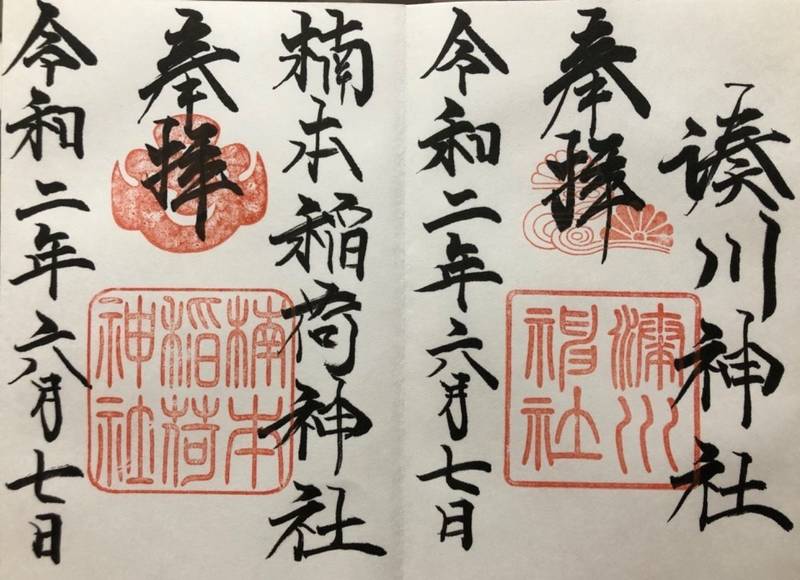 湊川神社
奉拝
湊川
神社
令和二年六月七日
楠本稲荷神社
奉拝
楠本
稲荷
神社
令和二年六月七日